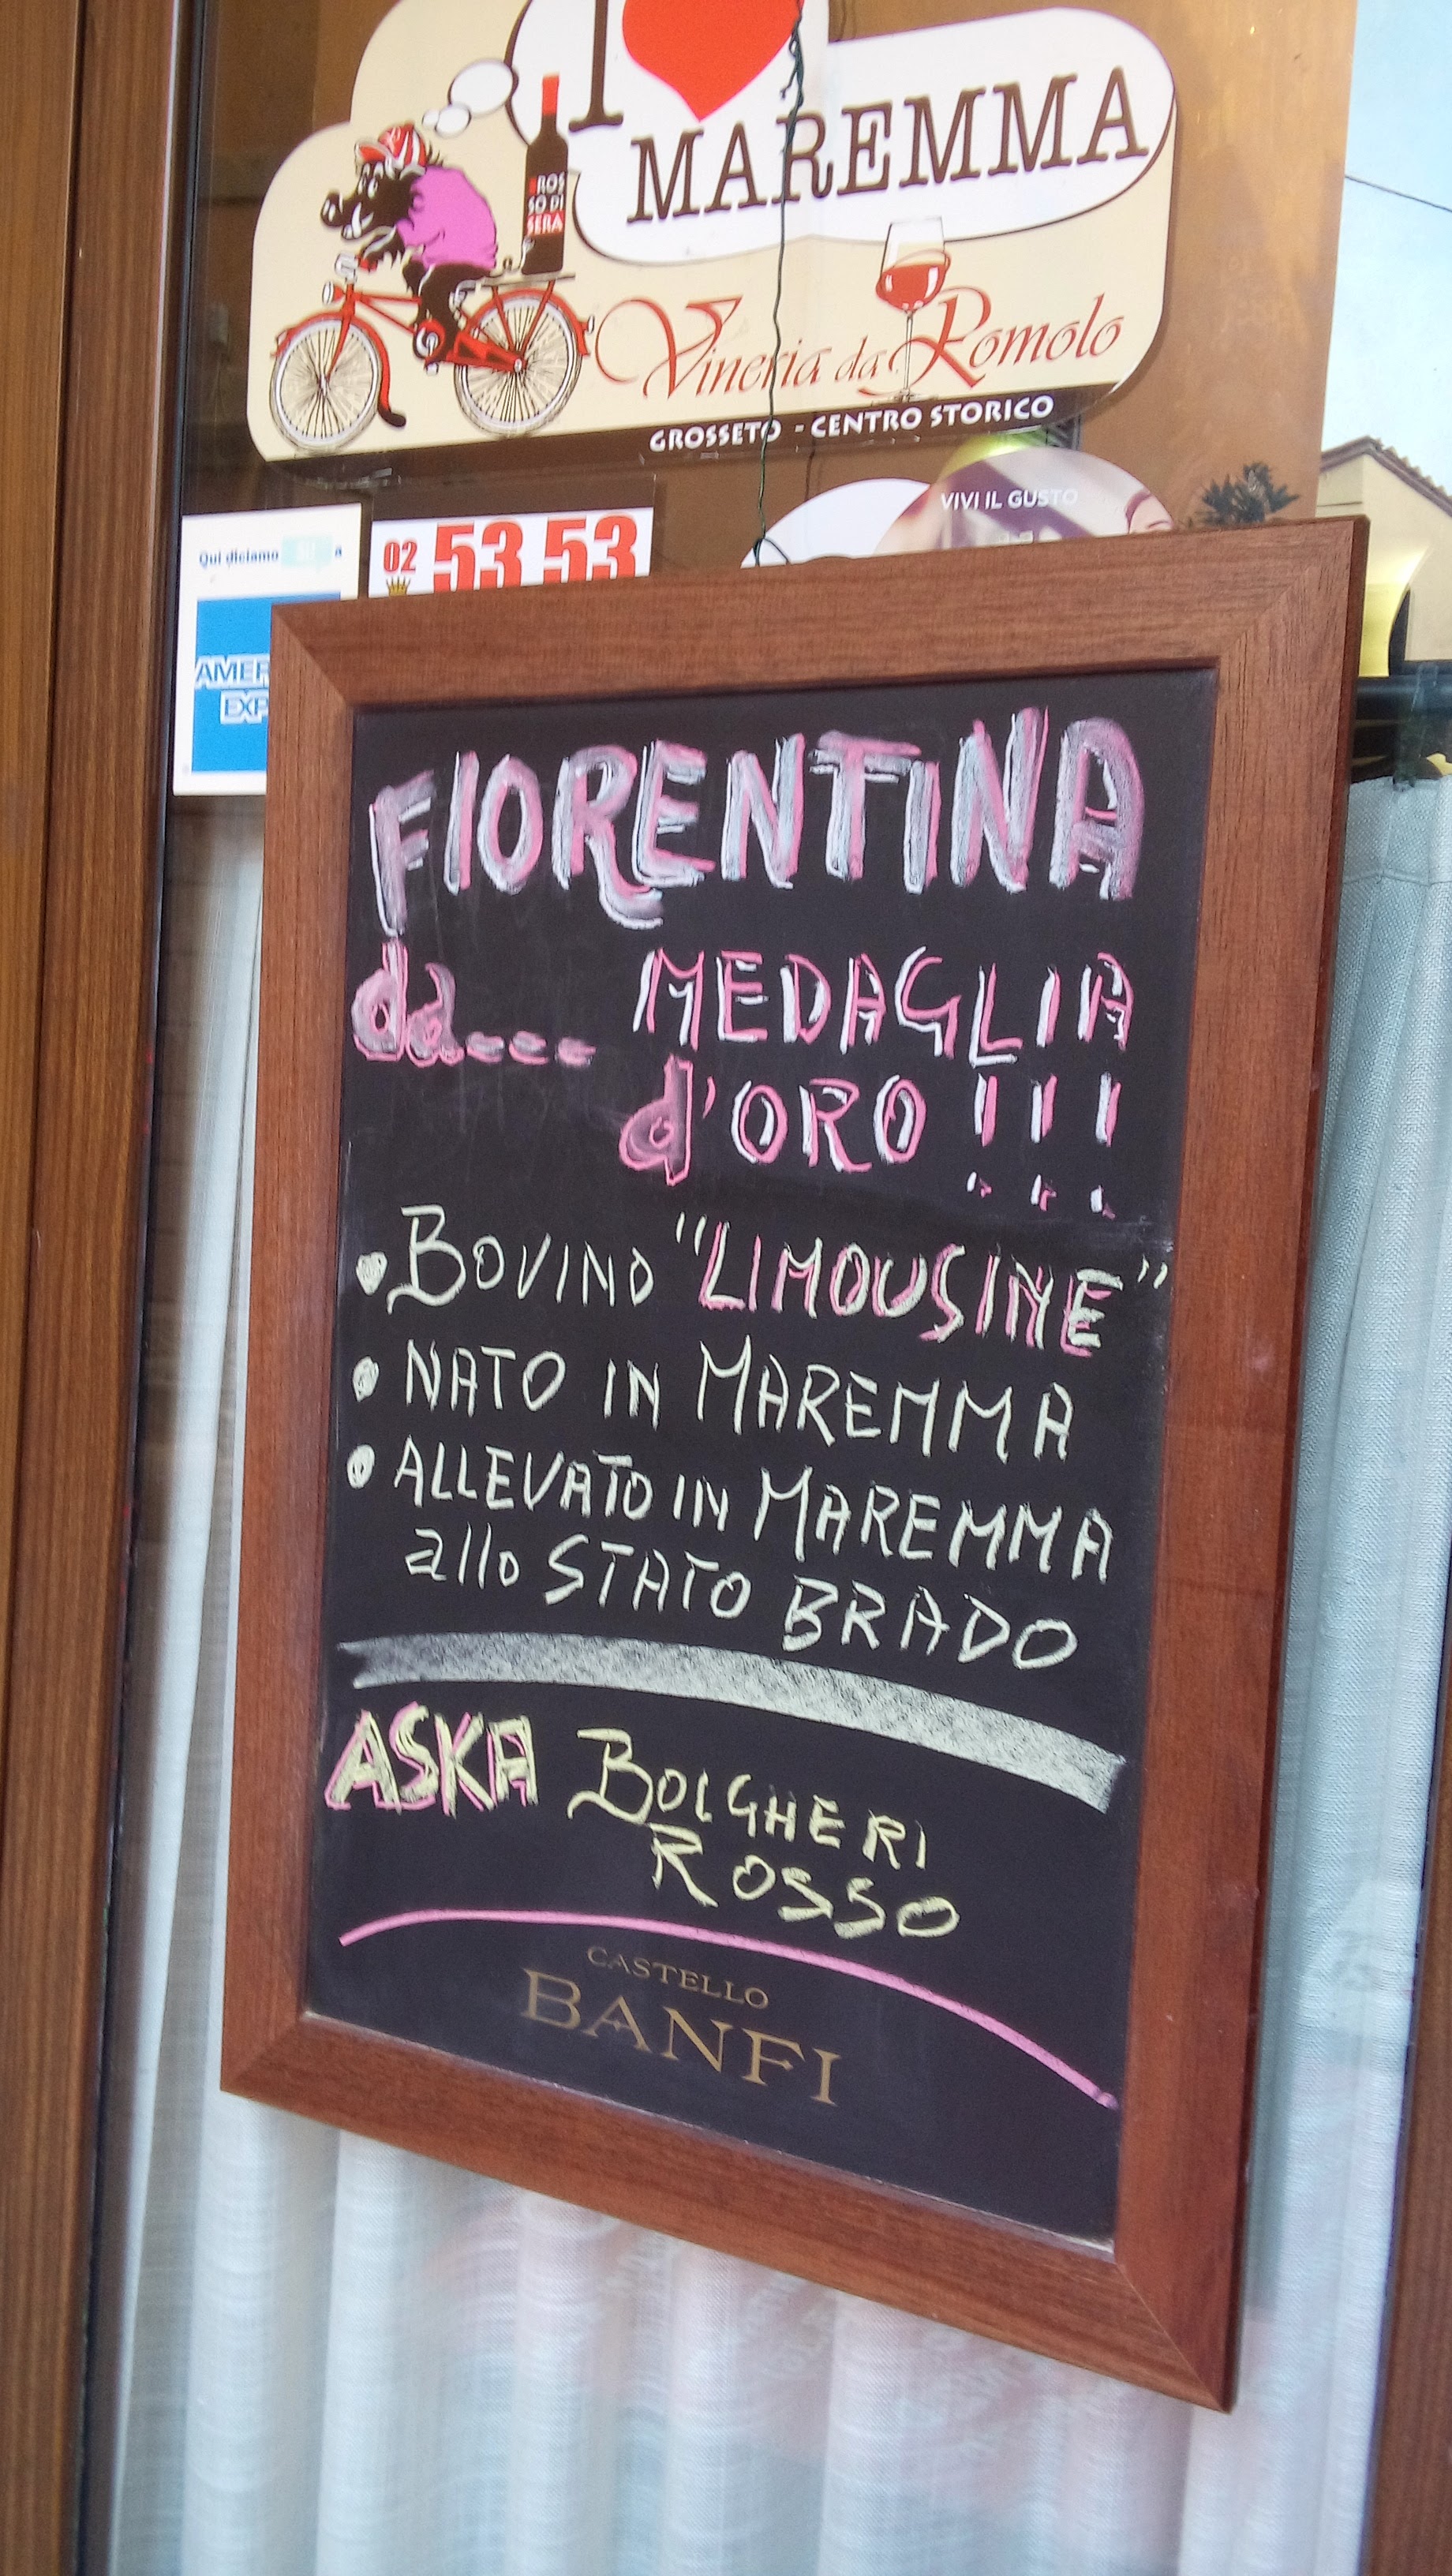 I
MAREMMA
ROS
SO DI
SERA
Vineria da Romolo
GROSSETO - CENTRO STORICO
VIVI IL GUSTO
Qui diciamo a
02 53 53
AMER
EXP
FIORENTINA
da... MEDAGLIA
d'ORO !!!
• BOVINO "LIMOUSINE"
• NATO IN MAREMMA
• ALLEVATO IN MAREMMA
allo STATO BRADO
ASKA BOLGHERI
ROSSO
CASTELLO
BANFI